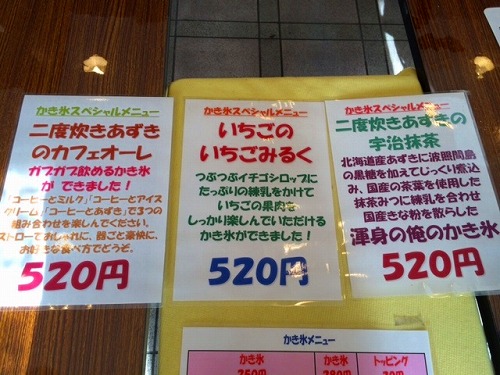 かき氷スペシャルメニュー
二度炊きあずき
のカフェオーレ
ガブガブ飲めるかき氷
が できました!
「コーヒーとミルク」「コーヒーとアイス
クリーム」「コーヒーとあずき」で3つの
組み合わせを楽しんでください。
ストローでおしゃれに、器ごと豪快に、
お好きな食べ方でどうぞ。
520円
かき氷スペシャルメニュー
いちごの
いちごみるく
つぶつぶイチゴシロップに
たっぷりの練乳をかけて
いちごの果肉を
しっかり楽しんでいただける
かき氷ができました!
520円
かき氷スペシャルメニュー
二度炊きあずきの
宇治抹茶
北海道産あずきに波照間島
の黒糖を加えてじっくり煮込
み、国産の茶葉を使用した
抹茶みつに練乳を合わせ
国産きな粉を散らした
渾身の俺のかき氷
520円
かき氷メニュー
かき氷
かき氷
トッピング